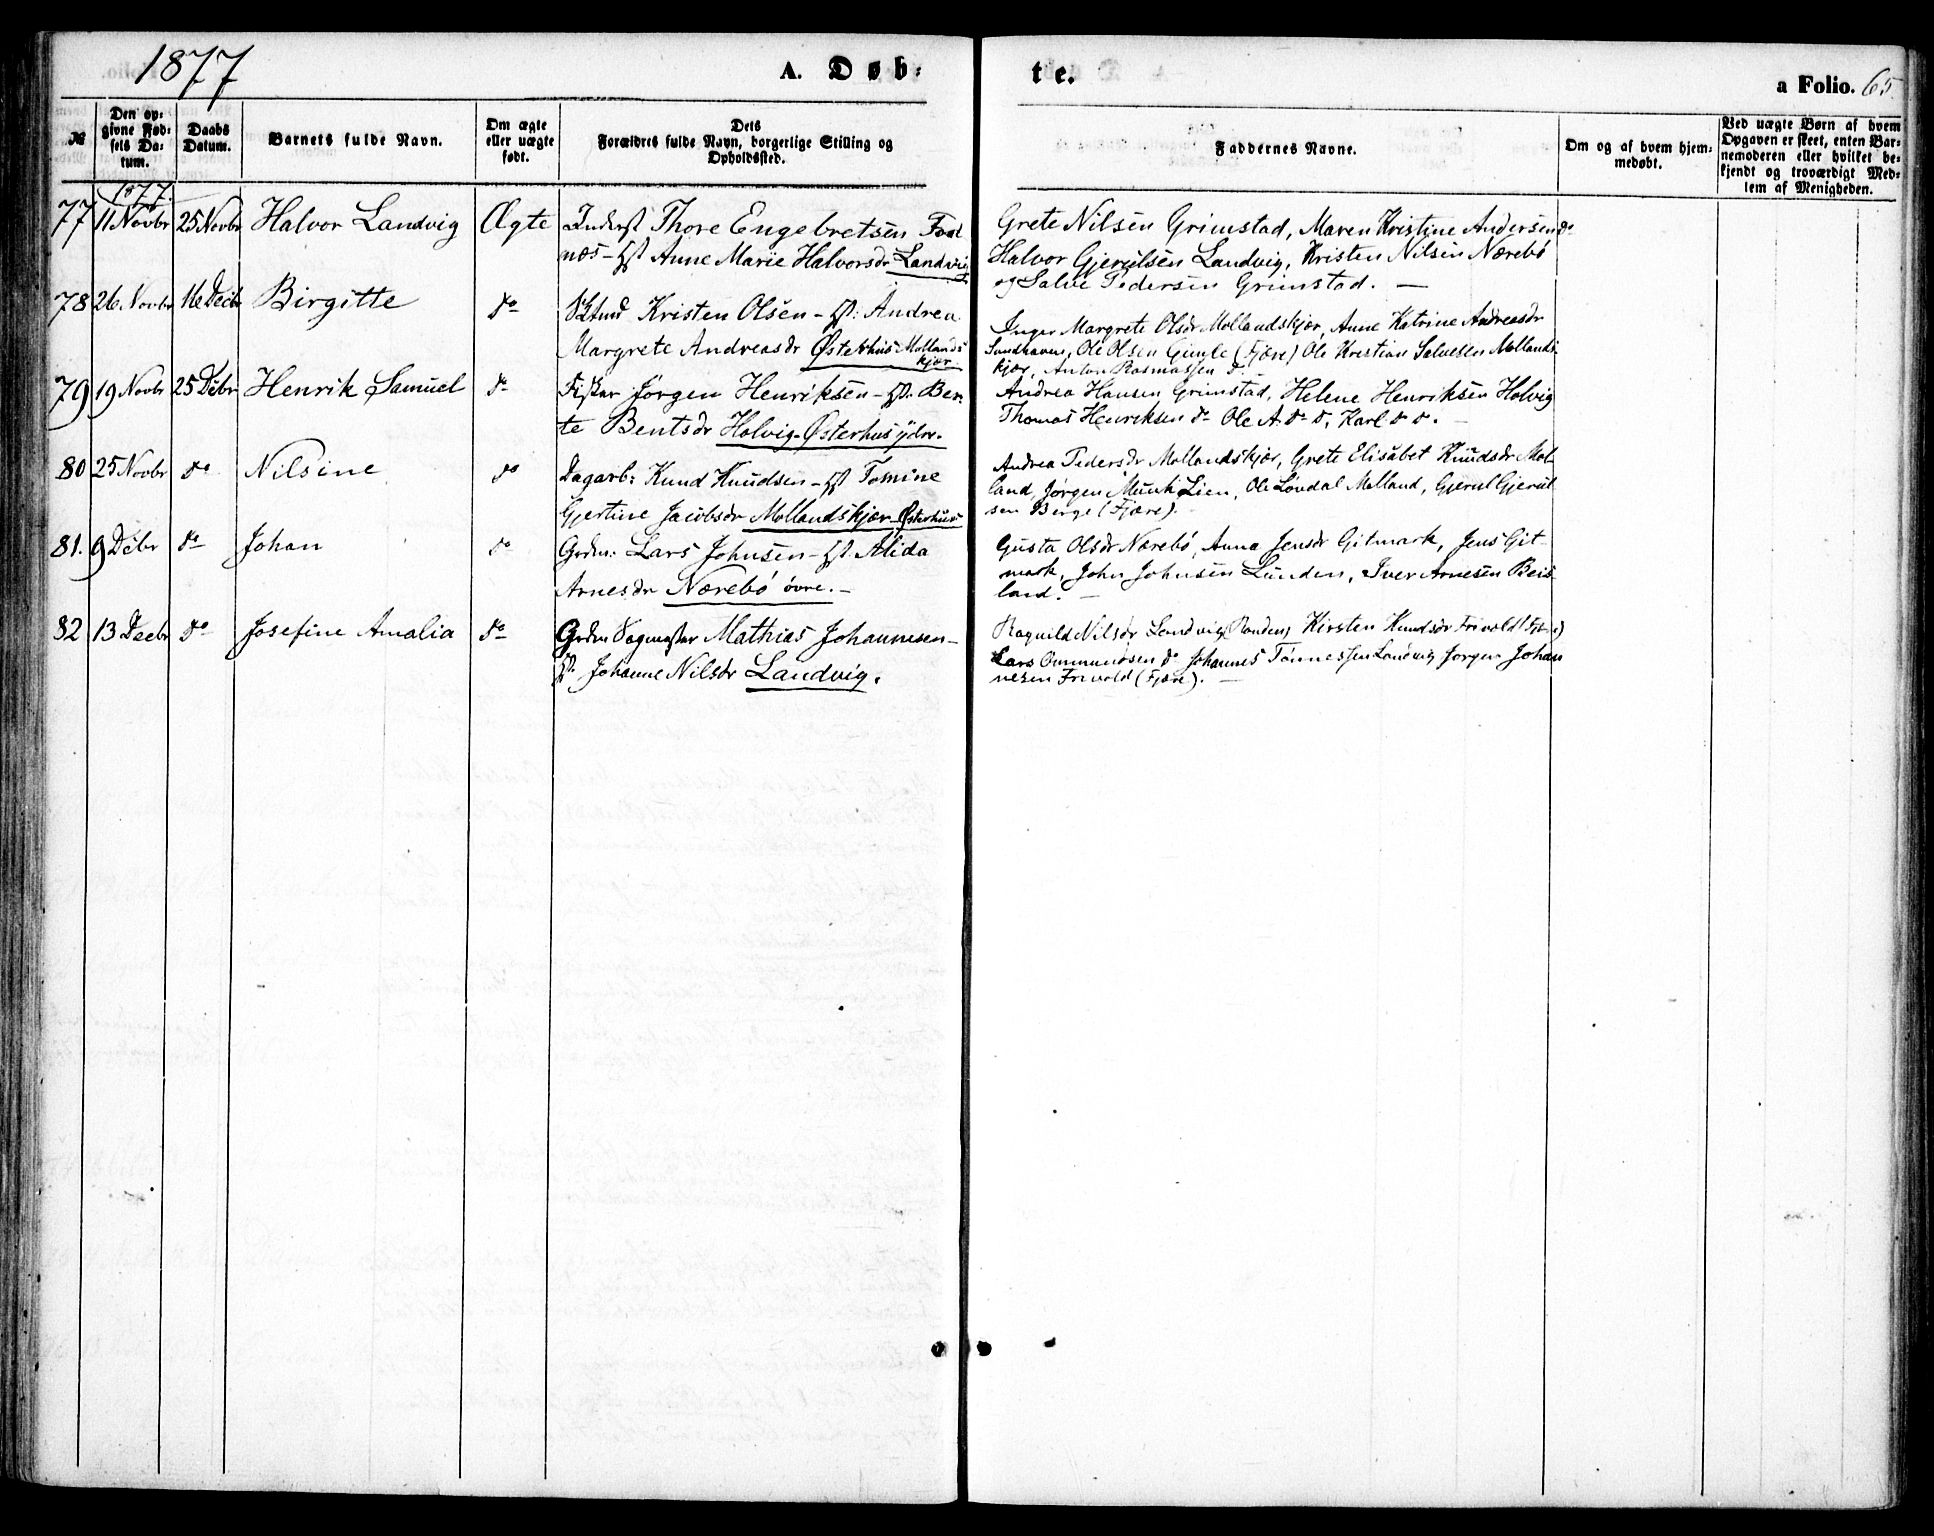 1877
A. Døb-
te.
a Folio. 65
№
Den op-
givne Fød-
sels Da-
tum.
Daabs
Datum.
Barnets fulde Navn.
Om ægte
eller uægte
født.
Dets
Forældres fulde Navn, borgerlige Stilling og
Opholdssted.
Faddernes Navne.
Om og af hvem hjem-
medøbt.
Ved uægte Børn af hvem
Opgaven er skeet, enten Bar-
nemoderen eller hvilket be-
kjendt og troværdigt Med-
lem af Menigheden.
1877.
77 11 Novbr 25 Novbr Halvor Landvig Ægte Inderst Thore Engebretsen
næs - Hst Anne Marie Halvorsdr Landvig
Grete Nilsen Grimstad, Maren Kristine Andersen do
Halvor Gjerulsen Landvig, Kristen Nilsen Nærebö
og Salve Pedersen Grimstad. —
78 26 Novbr 16 Decbr Birgitte do Kristen Olsen - Hst: Andrea
Margrete Andreasdr Østerhus Mollands
kjær.
Inger Margrete Olsdr Mollandskjær, Anne Katrine Andreasdr
Ole Olsen Gimle (Fjære) Ole Kristian Salvesen Mollands-
kjær, Anton Rasmussen do.
79 19 Novbr 25 Dcbr Henrik Samuel do Fisker Jörgen Henriksen - Hst. Ber-
te Bentsdr Holvig-Østerhus ydre.
Andrea Hansen Grimstad, Helene Henriksen Holvig
Thomas Henriksen do Ole A. do do, Karl do do. -
80 25 Novbr do Nilsine do Dagarb: Knud Knudsen - Hst Tomine
Gjertine Jacobsdr Mollandskjær-Østerhus
Andrea Pedersdr Mollandskjær, Grete Elisabet Knudsdr Mol-
land, Jørgen Munk Lien, Ole Løvdal Molland, Gjerul Gjerul-
sen Berge (Fjære).
81. 9 Dcbr do Johan do Grdm: Lars Johnsen - Hst. Alida
Arnesdr Nærebö övre. -
Gusta Olsdr Nærebö, Anna Jensdr Gitmark, Jens Git-
mark, John Johnsen Lunden, Iver Arnesen Beis-
land. -
82 13 Decbr do Josefine Amalia do Grdm Mathias Johannesen -
Hst. Johanne Nilsdr Landvig.
Ragnild Nilsdr Landvig, Kirsten Knudsdr Frivold
Lars Ommundsen do Johannes Tønnessen Landvig Jørgen Johan
nesen Frivold (Fjære). -